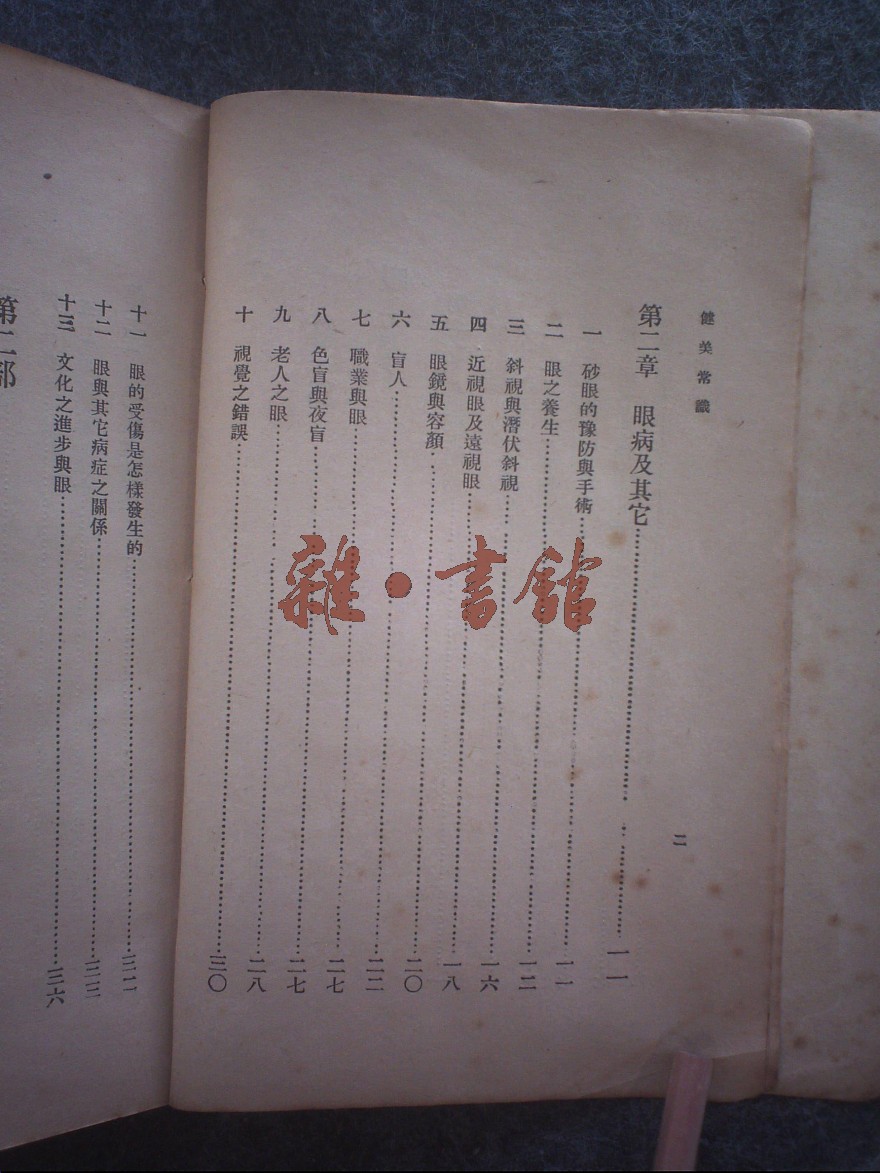 健美常識
二
第二章 眼病及其它……一一
一 砂眼的豫防與手術……一一
二 眼之養生……一二
三 斜視與潛伏斜視……一六
四 近視眼及遠視眼……一八
五 眼鏡與容顏……二〇
六 盲人……二二
七 職業與眼……二七
八 色盲與夜盲……二七
九 老人之眼……二八
十 視覺之錯誤……三〇
十一 眼的受傷是怎樣發生的……三二
十二 眼與其它病症之關係……三三
十三 文化之進步與眼……三六
第二部
雜·書館